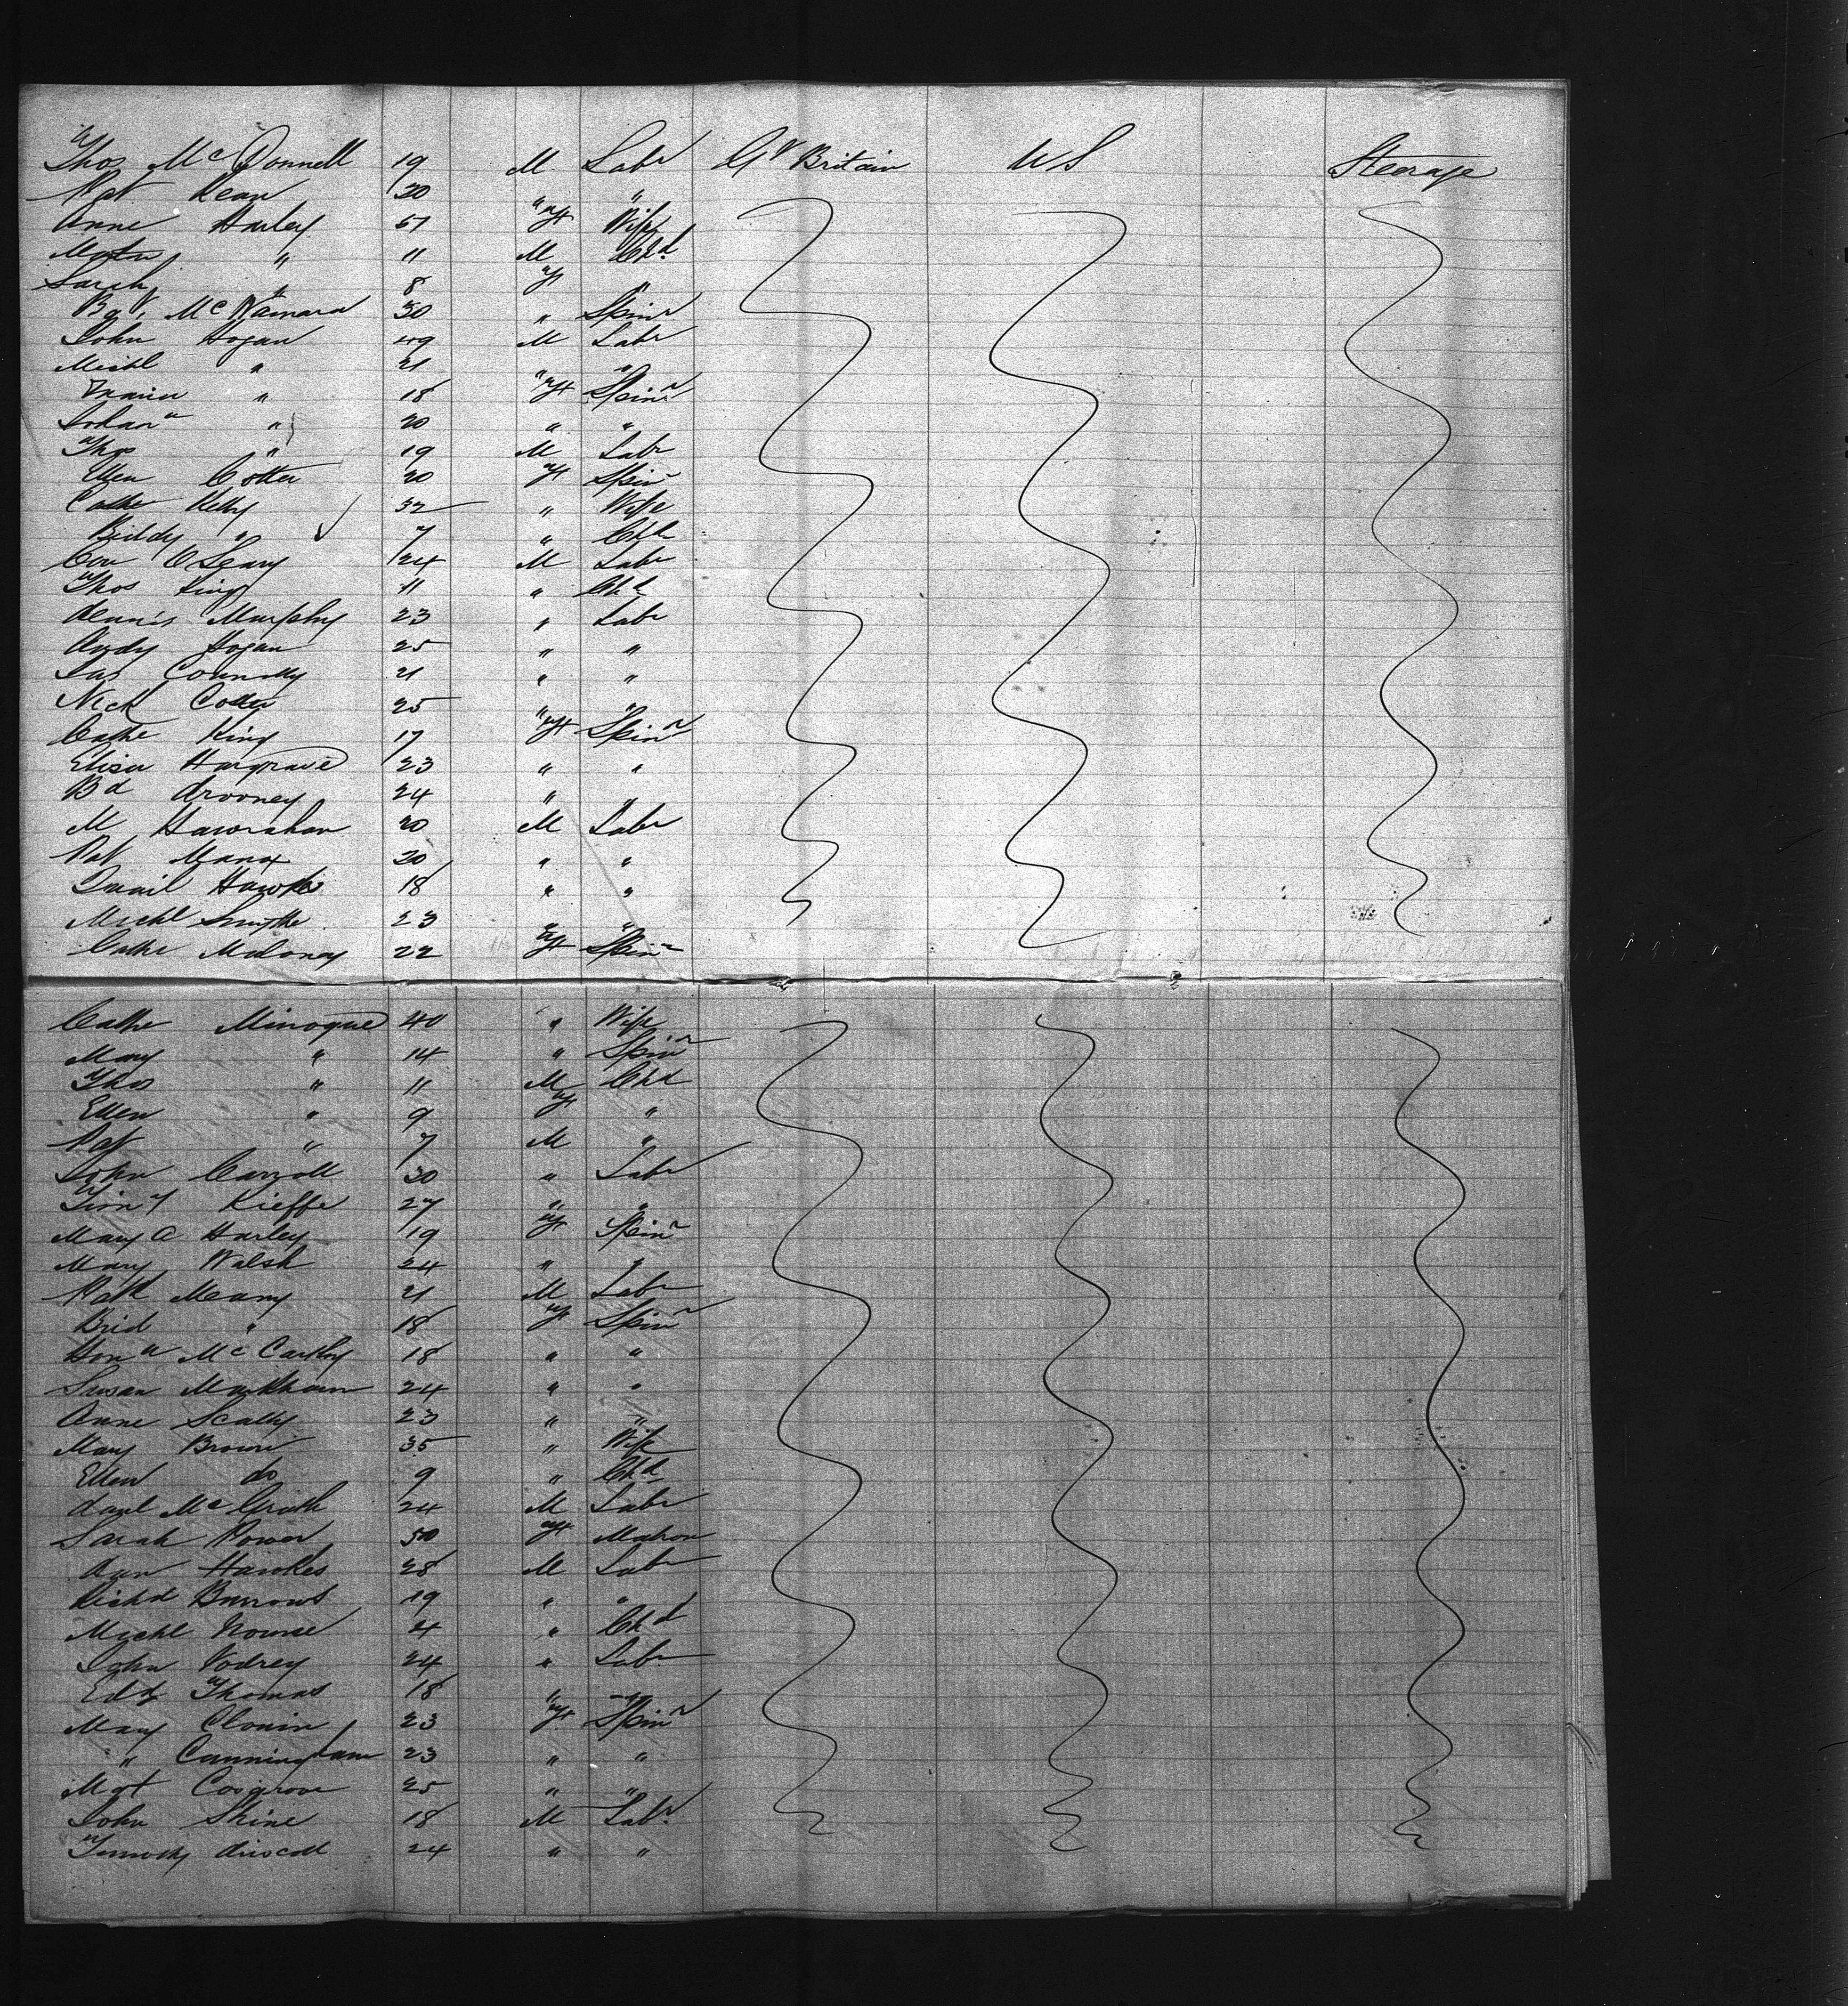 Thos McDonnell 19 M Labr Gt Britain US Steerage
Pat Kean 20 " "
Anne Harley 57 F Wife
" 11 M Chd
Sarah " 8 F "
McNamara 30 " Spinr
John Hogan 49 M Labr
Michl " 21 " "
" 18 F Spinr
Johana " 20 " "
Thos " 19 M Labr
Ellen Cotter 20 F Spinr
Cathe Kelly 32 " Wife
Biddy " 7 " Chd
Con O'Leary 24 M Labr
Thos King 11 " Chd
Dennis Murphy 23 " Labr
Andy Hogan 25 " "
Jas Connolly 21 " "
Nich Cotter 25 " "
Cathe King 17 F Spinr
Eliza Hargrave 23 " "
Bd Drooney 24 " "
M Hawrahan 20 M Labr
Pat 20 " "
Hawkes 18 " "
Michl Smythe 23 " "
Cathe Moloney 22 F Spinr
Cathe Minogue 40 " Wife
Mary " 14 " Spinr
Thos " 11 M Chd
Ellen " 9 F "
Pat " 7 M "
John Carroll 30 " Labr
Timy Kieffe 27 " "
Mary A Harley 19 F Spinr
Mary Walsh 24 " "
Patk Meany 21 M Labr
Brid " 18 F Spinr
Hona McCarthy 18 " "
Susan Markham 24 " "
Anne Scally 23 " "
Mary Brown 35 " Wife
Ellen do 9 " Chd
Danl McGrath 24 M Labr
Sarah Power 50 F Matron
Hawkes 28 M Labr
Richd Burrows 19 " "
Michl Nourse 4 " Chd
John Vodrey 24 " Labr
Edd Thomas 18 " "
Mary Clonin 23 F Spinr
" Cunningham 23 " "
Mgt Cosgrove 25 " "
John Shine 18 M Labr
Timothy Driscoll 24 " "